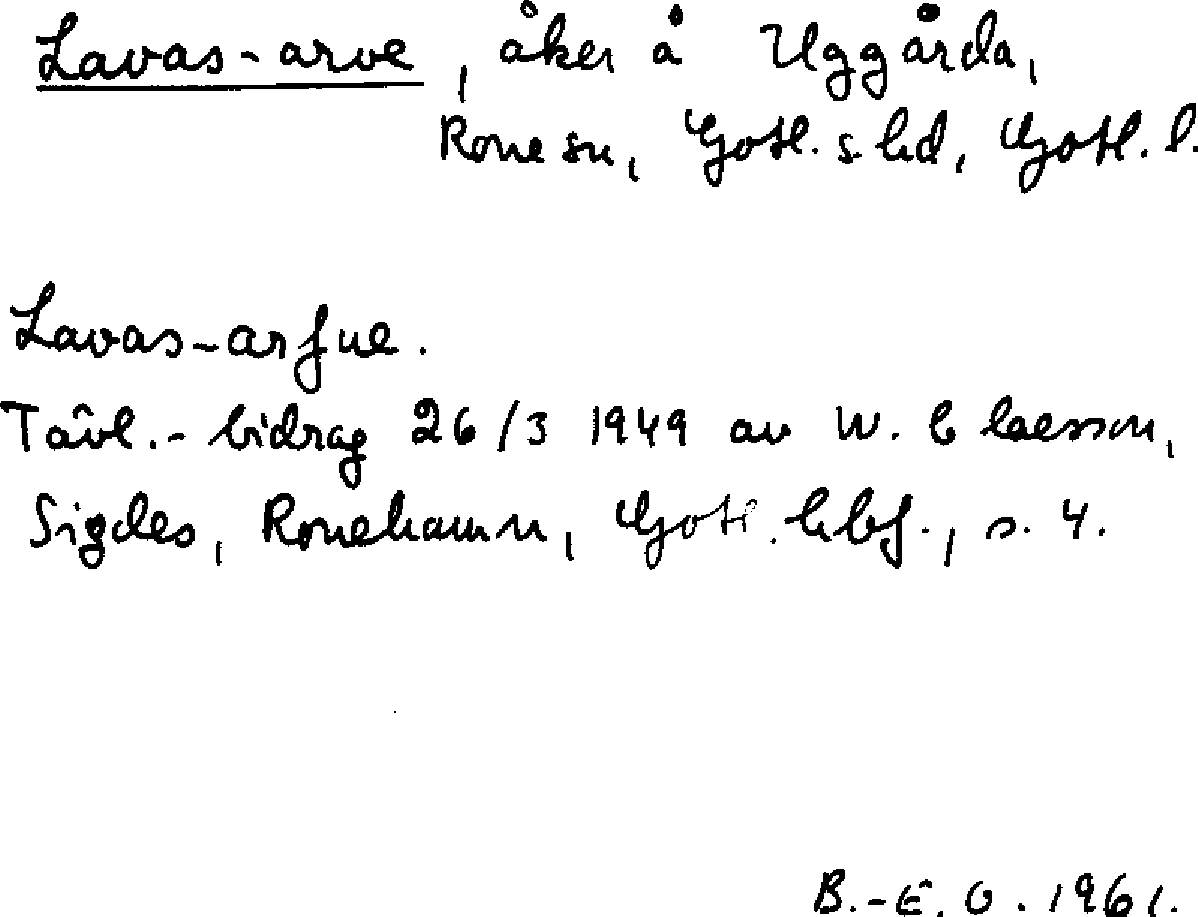 Lavas-arve, åker å Uggårda,
Rone sn, Gotl. s hd, Gotl. l.
Lavas-arfue.
Tävl.-bidrag 26/3 1949 av W. Claesson,
Sigdes, Ronehamn, Gotl. hbf., s. 4.
B.-E. O. 1961.